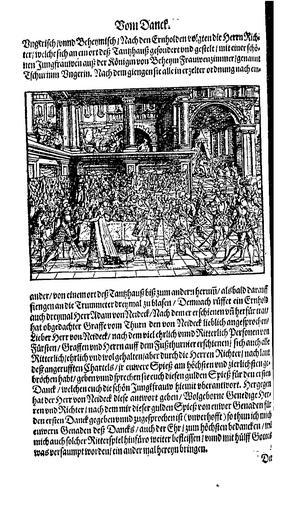 Vom Danck.
Ungrisch / vnnd Behemisch / Nach den Ernholden volgten die Herrn Rich-
ter / welche sich an ein ort deß Tantzhauß gesondert vnd gestelt / mit einer schö-
nen Jungfrauwen auß der Königin von Beheym Frauwenzimmer / genannt
Tschumm Ungerin. Nach dem giengen sie alle in erzelter ordnung nach ein-
ander / von einem ort deß Tantzhauß biß zum andern herumb / alsbald darauff
fiengen an die Trummeter dreymal zu blasen / Demnach rüfft ein Ernhold
auch dreymal Herr Adam von Neideck / Nach dem er erschienen vnd herfür trat /
hat obgedachter Graffe vom Thurn den von Neideck lieblich angesprochen /
Lieber Herr von Neideck / nach dem viel ehrlich vnnd Ritterlich Personen von
Fürsten / Graffen vnd Herrn auff dem Fußthurnier erschienen / sich auch alle
Ritterlich / ehrlich vnd wol gehalten / aber durch die Herren Richter / nach laut
deß angerufften Chartels / jr euwer Spieß am höchsten vnd zierlichsten ge-
brochen habt / geben vnd sprechen sie euch diesen gulden Spieß für den ersten
Danck / welchen euch die schön Jungfrauw hiemit vberantwort. Hergegen
hat der Herr von Neideck diese antwort geben / Wolgeborne Genedige Her-
ren vnd Richter / nach dem mir dieser gulden Spieß von euwer Genaden für
den ersten Danck gegeben vnd zugesprochen ist (vnverhofft) so thun ich mich
euwern Genaden deß Dancks / auch der Ehr / zum höchsten bedancken / wil
mich auch solcher Ritterspiel hinfüro weiter befleissen / vnnd mit hülff Gottes
was versaumpt worden / ein ander mal hereyn bringen.